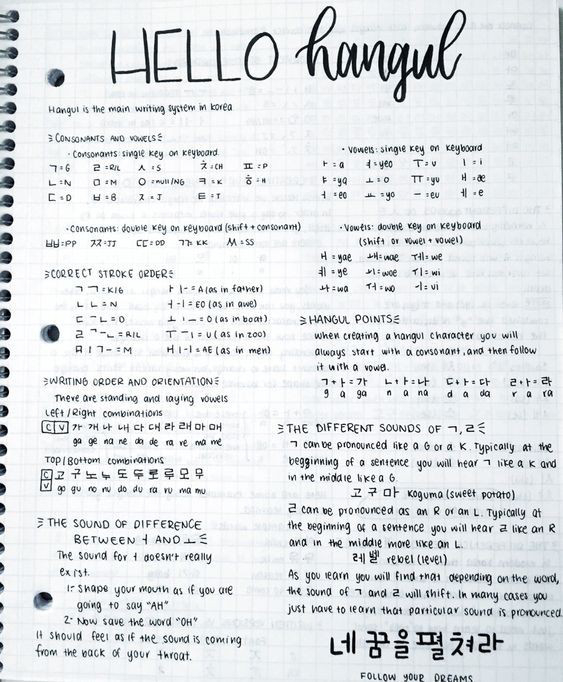 HELLO hangul
Hangul is the main writing system in korea
CONSONANTS AND VOWELS
• Consonants: single key on keyboard
ㄱ=G ㄹ=R/L ㅅ=S ㅊ=CH ㅍ=P
ㄴ=N ㅁ=M ㅇ=null/NG ㅋ=K ㅎ=H
ㄷ=D ㅂ=B ㅈ=J ㅌ=T
• Consonants: double key on keyboard (shift + consonant)
ㅃ=PP ㅉ=JJ ㄸ=DD ㄲ=KK ㅆ=SS
CORRECT STROKE ORDER
ㄱ ㄱ=K/G
ㄴ ㄴ=N
ㄷ =D
ㄹ =R/L
ㅁ =M
ㅏ =A (as in father)
ㅓ =EO (as in awe)
ㅗ =O (as in boat)
ㅜ =U (as in zoo)
ㅐ =AE (as in men)
WRITING ORDER AND ORIENTATION
There are standing and laying vowels
Left/Right combinations
C V 가 개 나 내 다 대 라 래 마 매
ga ge na ne da de ra re ma me
Top/Bottom combinations
C V 고 구 노 누 도 두 로 루 모 무
go gu no nu do du ro ru mo mu
THE SOUND OF DIFFERENCE
BETWEEN ㅓ AND ㅗ
The sound for ㅓ doesn't really
exist.
1- Shape your mouth as if you are
going to say "AH"
2- Now save the word "OH"
It should feel as if the sound is coming
from the back of your throat.
• Vowels: single key on keyboard
ㅏ=a ㅕ=yeo ㅜ=u ㅣ=i
ㅑ=ya ㅗ=o ㅠ=yu ㅐ=æ
ㅓ=eo ㅛ=yo ㅡ=eu ㅔ=e
• Vowels: double key on keyboard
(shift or vowel + vowel)
ㅒ=yae ㅙ=wae ㅞ=we
ㅖ=ye ㅚ=woe ㅟ=wi
ㅘ=wa ㅝ=wo ㅢ=ui
HANGUL POINTS
when creating a hangul character you will
always start with a consonant, and then follow
it with a vowel.
ㄱ+ㅏ=가 ㄴ+ㅏ=나 ㄷ+ㅏ=다 ㄹ+ㅏ=라
g a ga n a na d a da r a ra
THE DIFFERENT SOUNDS OF ㄱ, ㄹ
ㄱ can be pronounced like a G or a K. Typically at the
beggining of a sentence you will hear ㄱ like a K and
in the middle like a G.
고구마 Koguma (sweet potato)
ㄹ can be pronounced as an R or an L. Typically at
the beginning of a sentence you will hear ㄹ like an R
and in the middle more like an L.
레벨 rebel (level)
As you learn you will find that depending on the word,
the sound of ㄱ and ㄹ will shift. In many cases you
just have to learn that particular sound is pronounced.
네 꿈을 펼쳐라
FOLLOW YOUR DREAMS